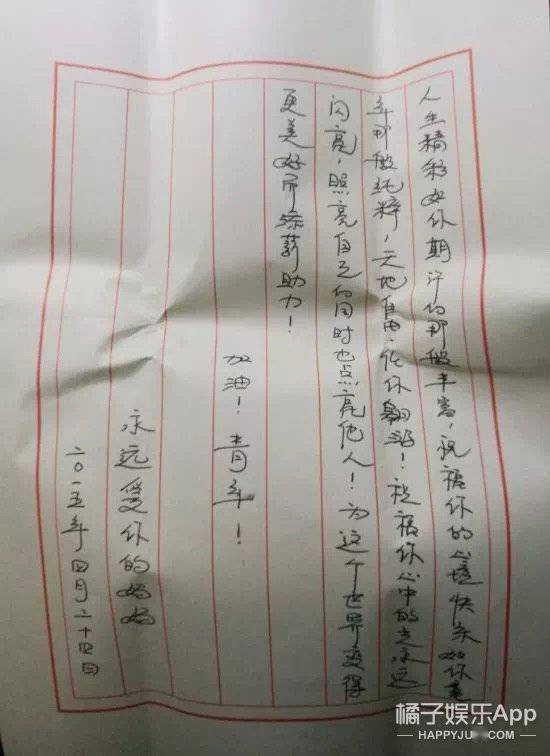 人生精彩如你期许的那般丰富，祝福你的心境快乐如你童
年那般纯粹，天地自由任你翱翔！祝福你心中的光永远
闪亮，照亮自己的同时也点亮他人！为这个世界变得
更美好而添薪助力！
加油！青年！
永远爱你的妈妈
二〇一五年四月二十四日
橘子娱乐App
HAPPYJU.COM